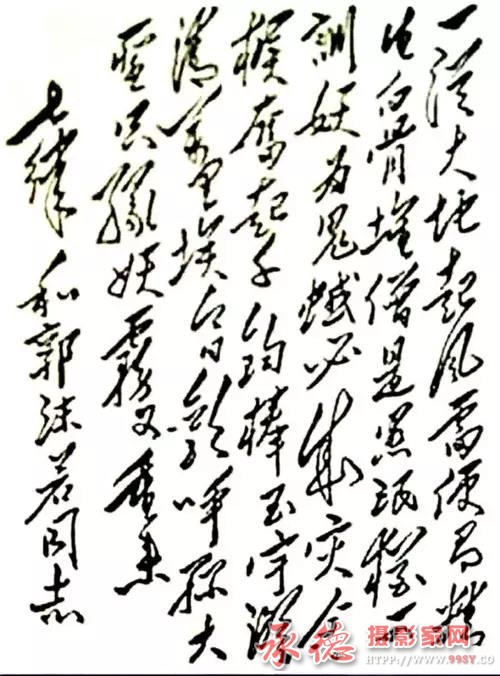 一從大地起风雷便有精
生白骨堆僧是愚氓猶可
訓妖为鬼蜮必成灾金
猴奮起千鈞棒玉宇澄
清萬里埃今日歡呼孫大
聖只緣妖霧又重来
七律 和郭沫若同志
承德摄影家网
HTTP://WWW.99SY.CN